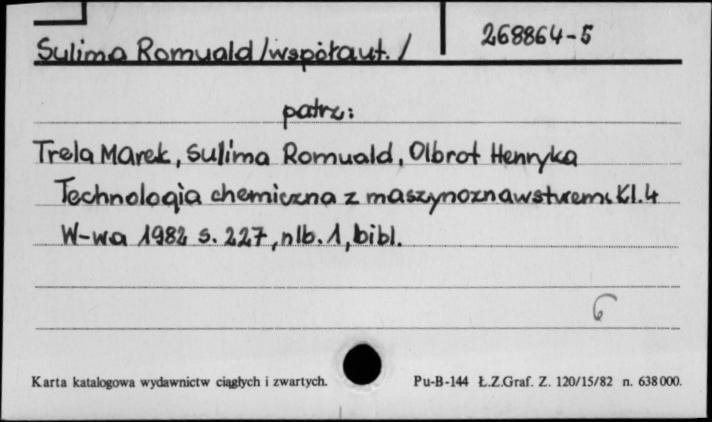 Sulima Romuald /współaut./ 268864-5
patrz:
Trela Marek, Sulima Romuald, Olbrot Henryka
Technologia chemiczna z maszynoznawstwem. Kl.4
W-wa 1982 s. 227, nlb. 1, bibl.
6
Karta katalogowa wydawnictw ciągłych i zwartych. Pu-B-144 Ł.Z.Graf. Z. 120/15/82 n. 638 000.